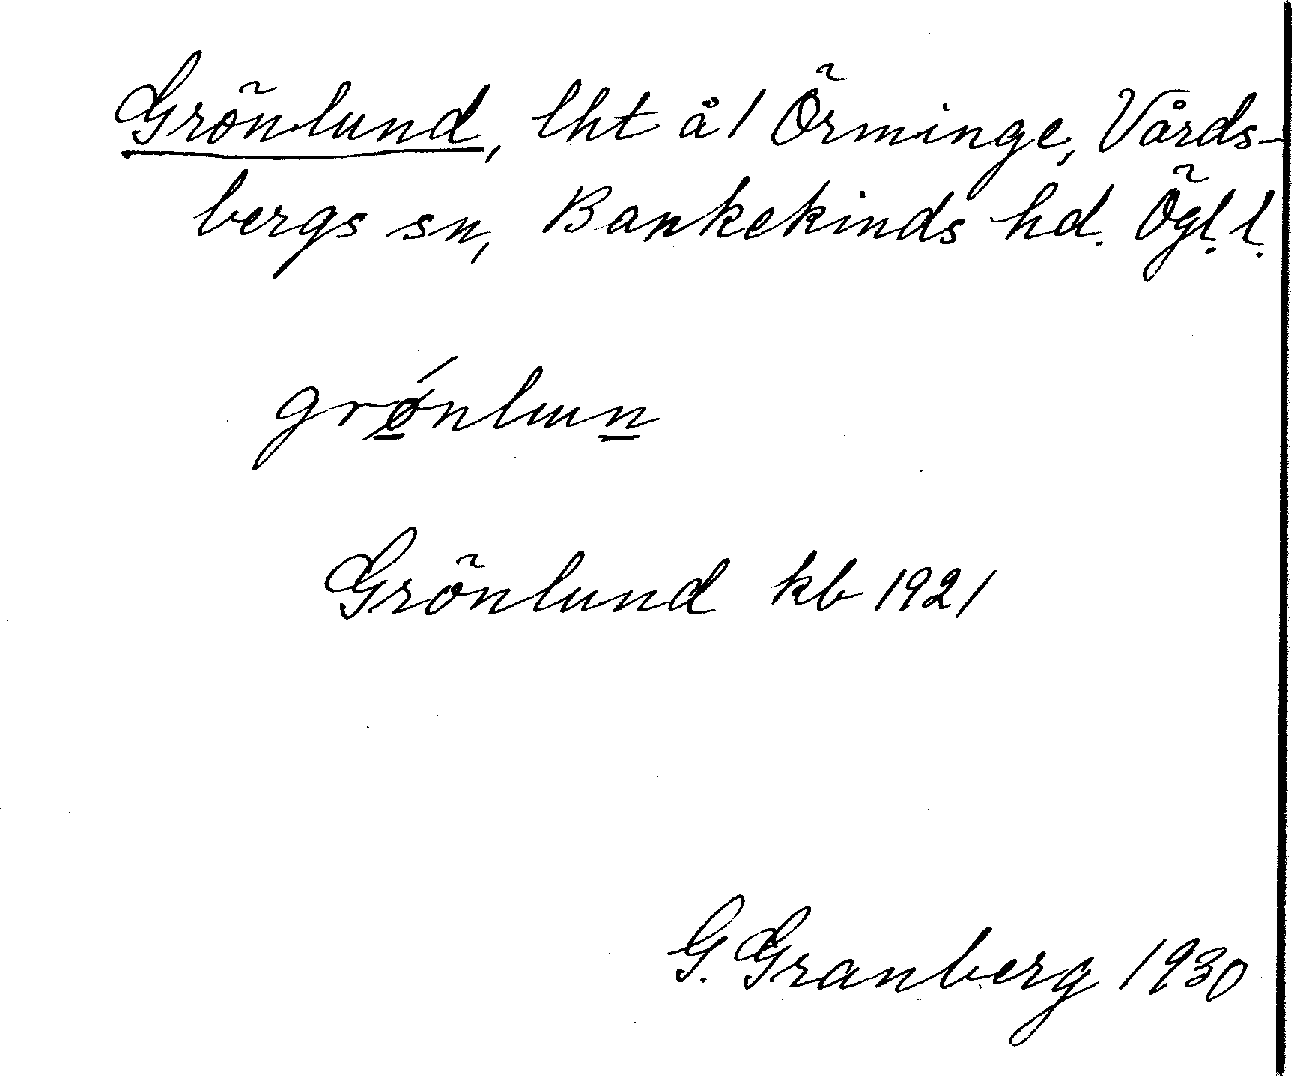 Grönlund, lht å 1 Örminge, Vårds-
bergs sn, Bankekinds hd. Ögl. l.
grǿnlun
Grönlund kb 1921
G. Granberg 1930